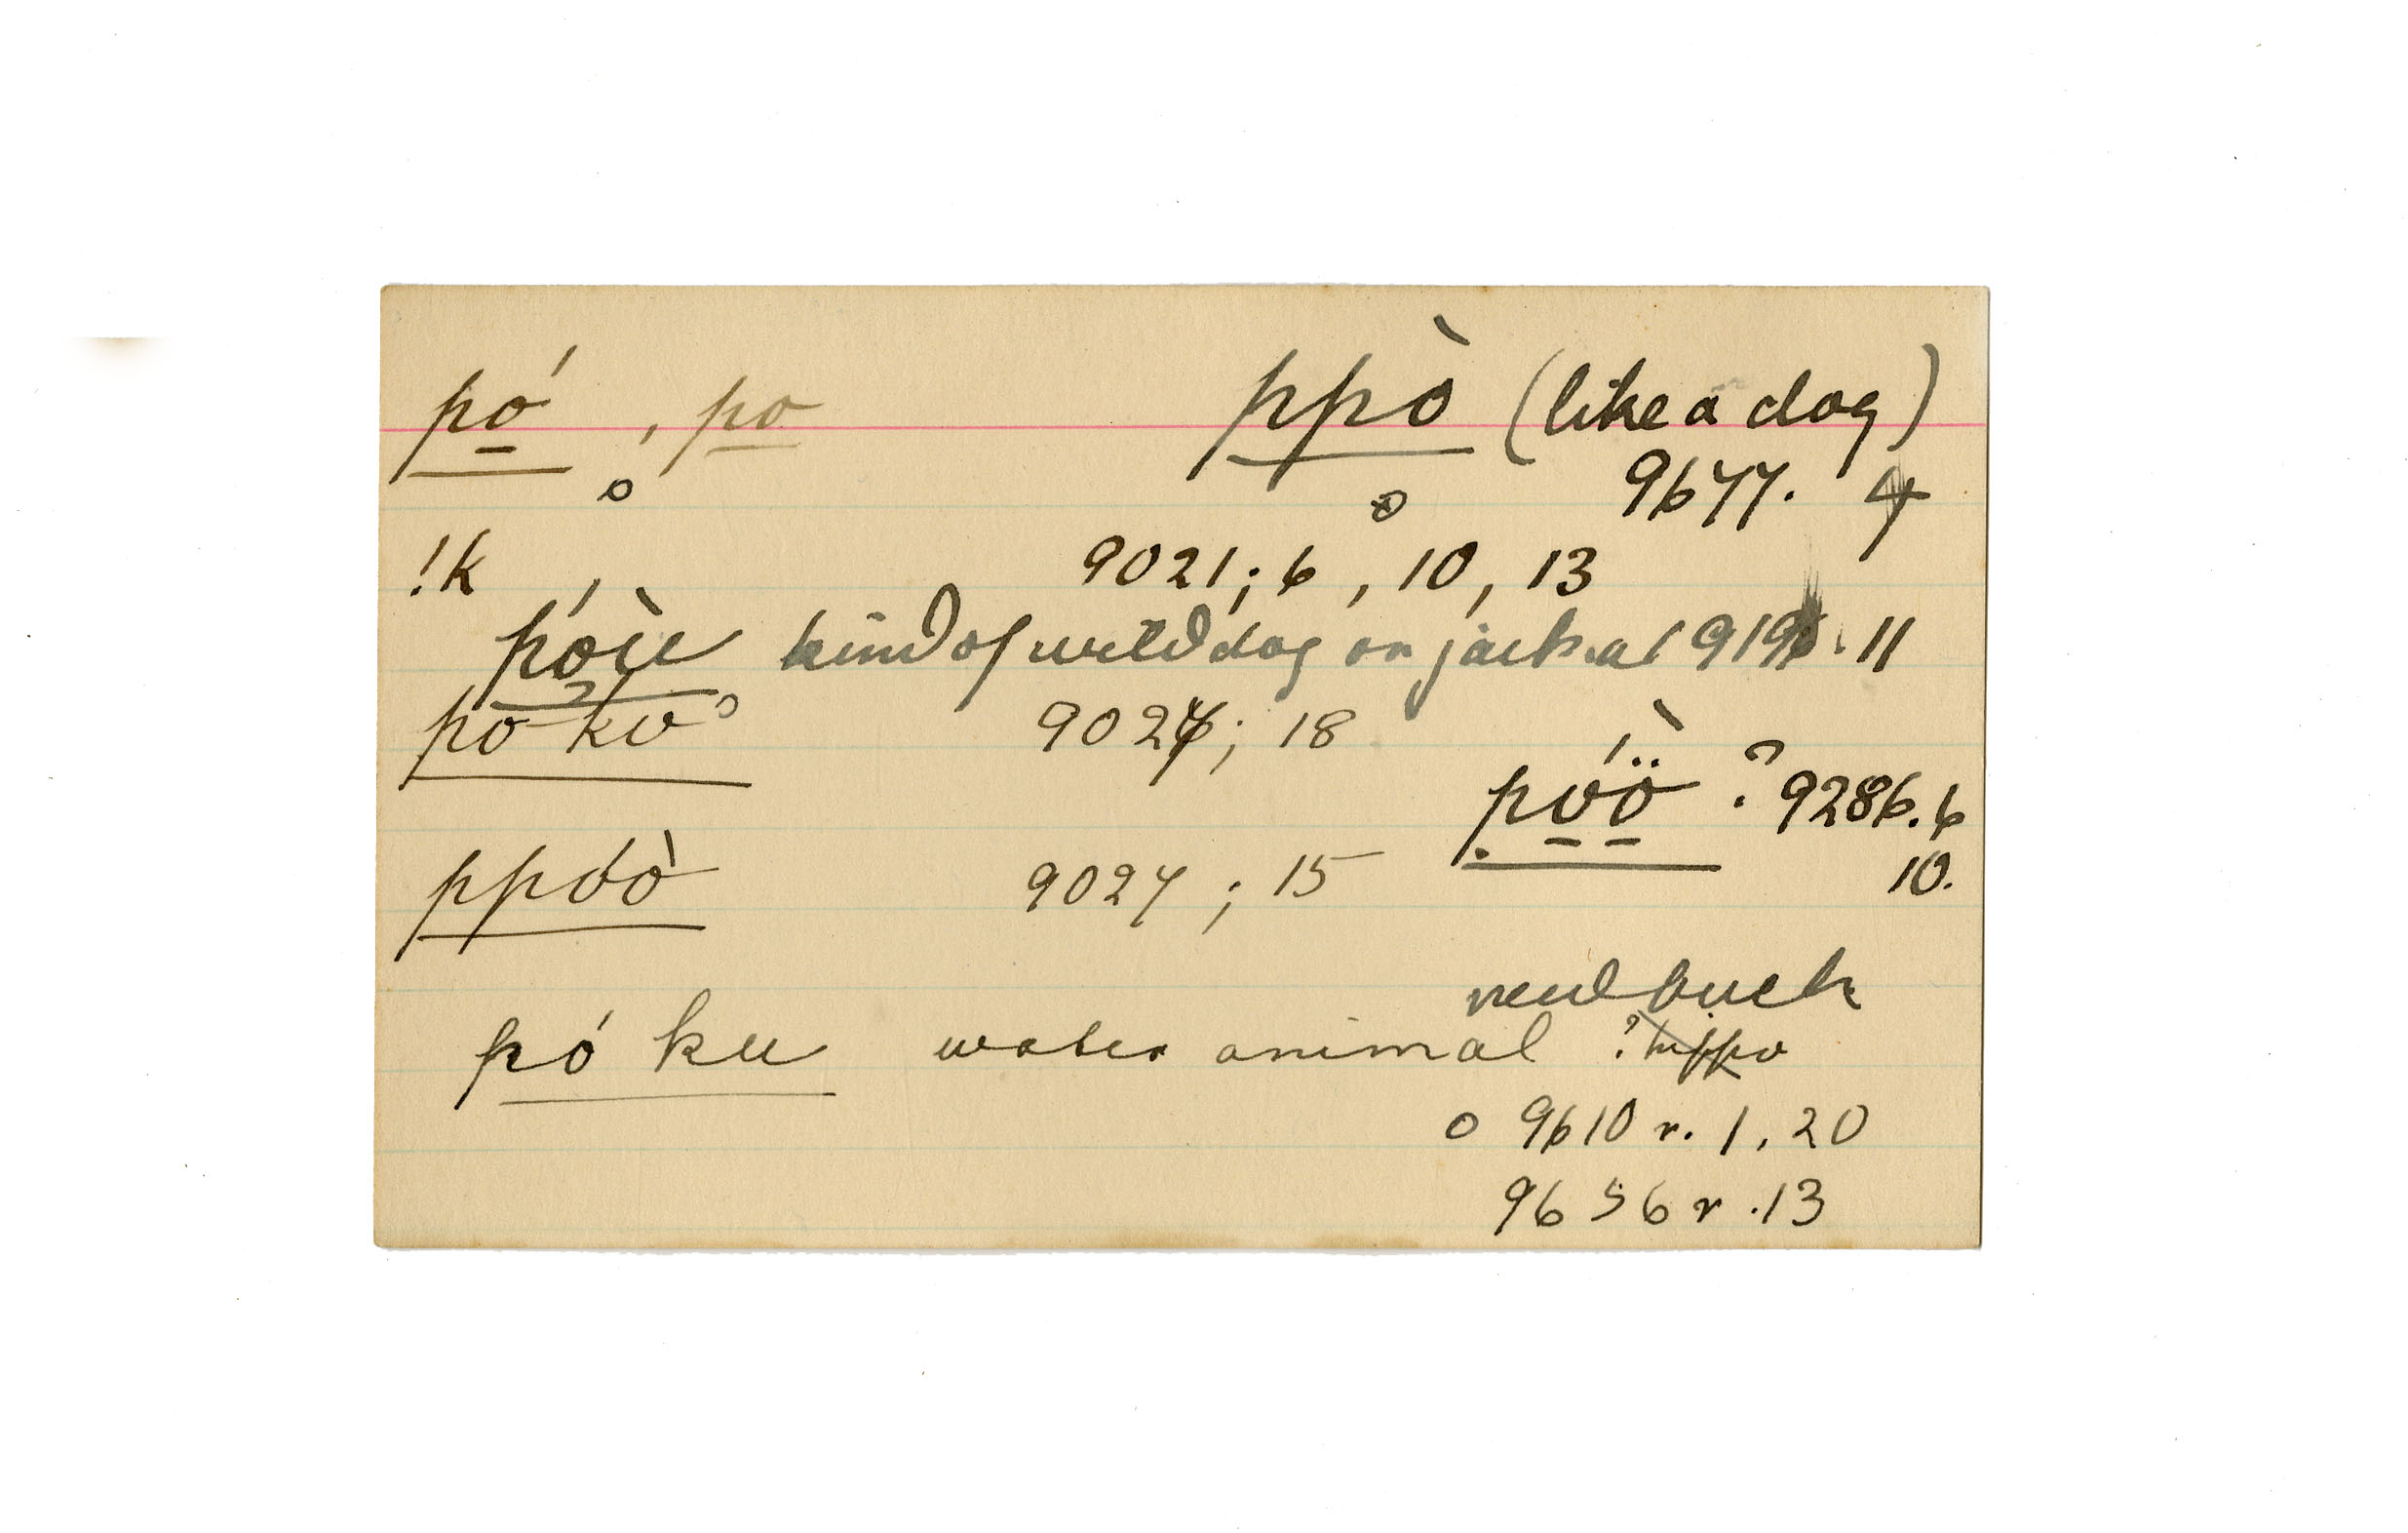 pó̱ , po ppò (like a dog)
o o 9677. 4
!k 9021; 6, 10, 13
póìu kind of wild dog or jackal 9196. 11
po ku o 9027; 18
póö̀ ? 9286. 6
10.
ppóò 9027; 15
buck
pó ku water animal ? hippo
o 9610 r. 1, 20
9656 r. 13